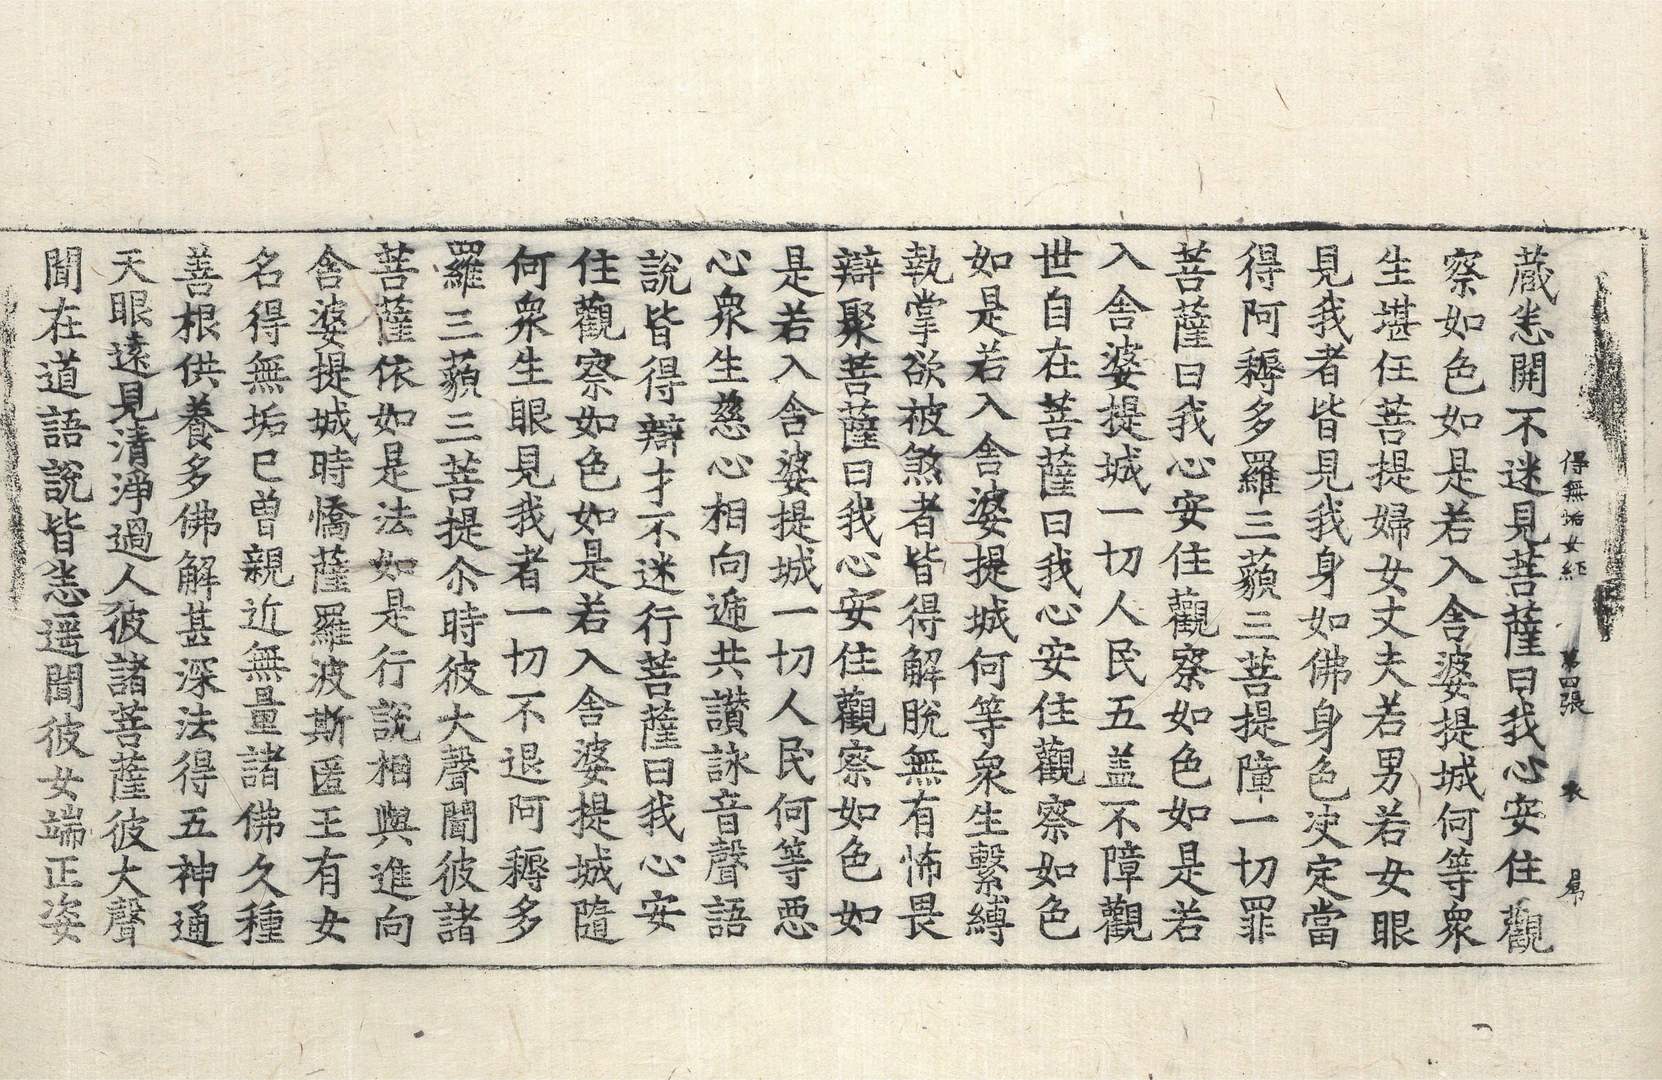 得無垢女経 第四張 衣 昺
蔵恙開不迷見菩薩曰我心安住觀
察如色如是若入舍婆提城何等衆
生堪任菩提婦女丈夫若男若女眼
見我者皆見我身如佛身色决定當
得阿耨多羅三藐三菩提障一切罪
菩薩曰我心安住觀察如色如是若
入舍婆提城一切人民五盖不障觀
世自在菩薩曰我心安住觀察如色
如是若入舍婆提城何等衆生繫縛
執掌欲被煞者皆得解脫無有怖畏
辯聚菩薩曰我心安住觀察如色如
是若入舍婆提城一切人民何等惡
心衆生慈心相向遞共讃詠音聲語
說皆得辯才不迷行菩薩曰我心安
住觀察如色如是若入舍婆提城隨
何衆生眼見我者一切不退阿耨多
羅三藐三菩提尒時彼大聲聞彼諸
菩薩依如是法如是行說相與進向
舍婆提城時憍薩羅波斯匿王有女
名得無垢已曾親近無量諸佛久種
善根供養多佛解甚深法得五神通
天眼遠見清淨過人彼諸菩薩彼大聲
聞在道語說皆恙遥聞彼女端正姿